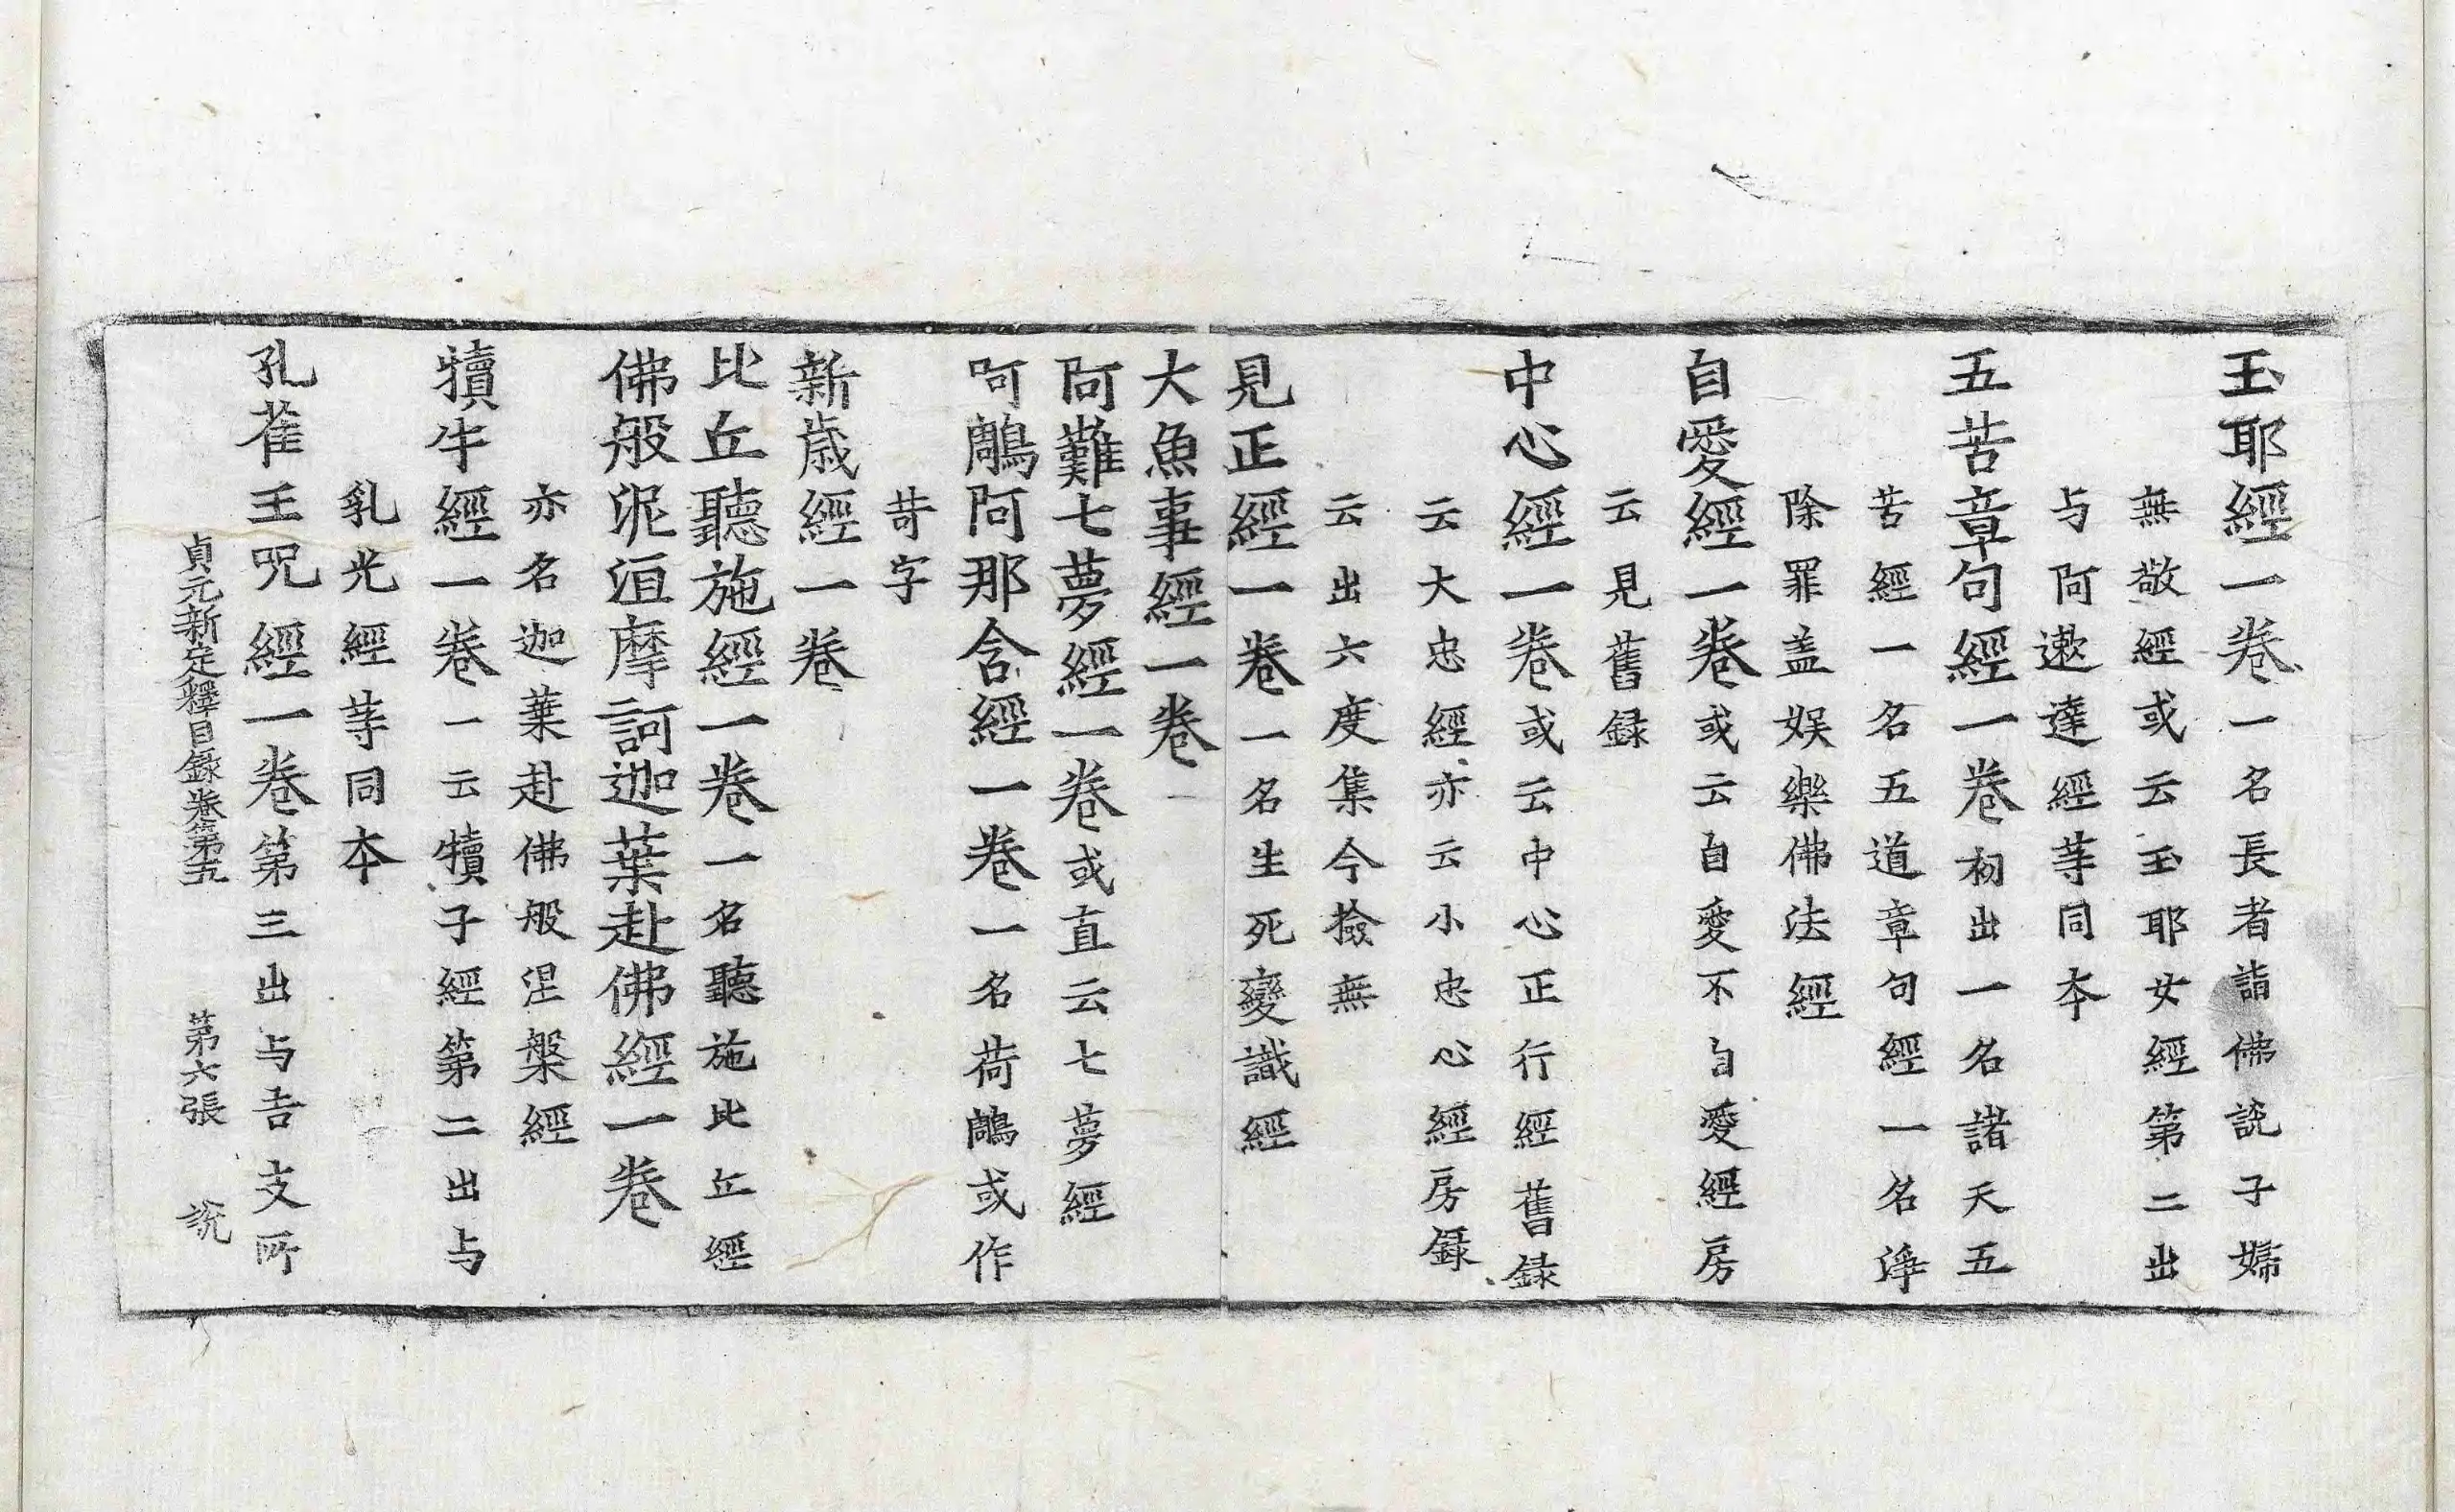 玉耶經一卷一名長者詣佛說子婦
無敬經或云玉耶女經第二出
与阿遬達經䓁同夲
五苦章句經一卷初出一名諸天五
苦經一名五道章句經一名淨
除罪盖娛樂佛法經
自愛經一卷或云自愛不自愛經房
云見舊録
中心經一卷或云中心正行經舊録
云大忠經亦云小忠心經房録
云出六度集今撿無
見正經一卷一名生死變識經
大魚事經一卷
阿難七夢經一卷或直云七夢經
呵鵰阿那含經一卷一名荷鵰或作
苛字
新歳經一卷
比丘聽施經一卷一名聽施比丘經
佛般泥洹摩訶迦葉赴佛經一卷
亦名迦葉赴佛般涅槃經
犢牛經一卷一云犢子經第二出与
乳光經䓁同夲
孔雀王呪經一卷第三出与吉支所
貞元新定釋目錄卷第五 第六張 說